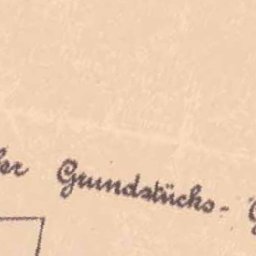 Grundstücks-